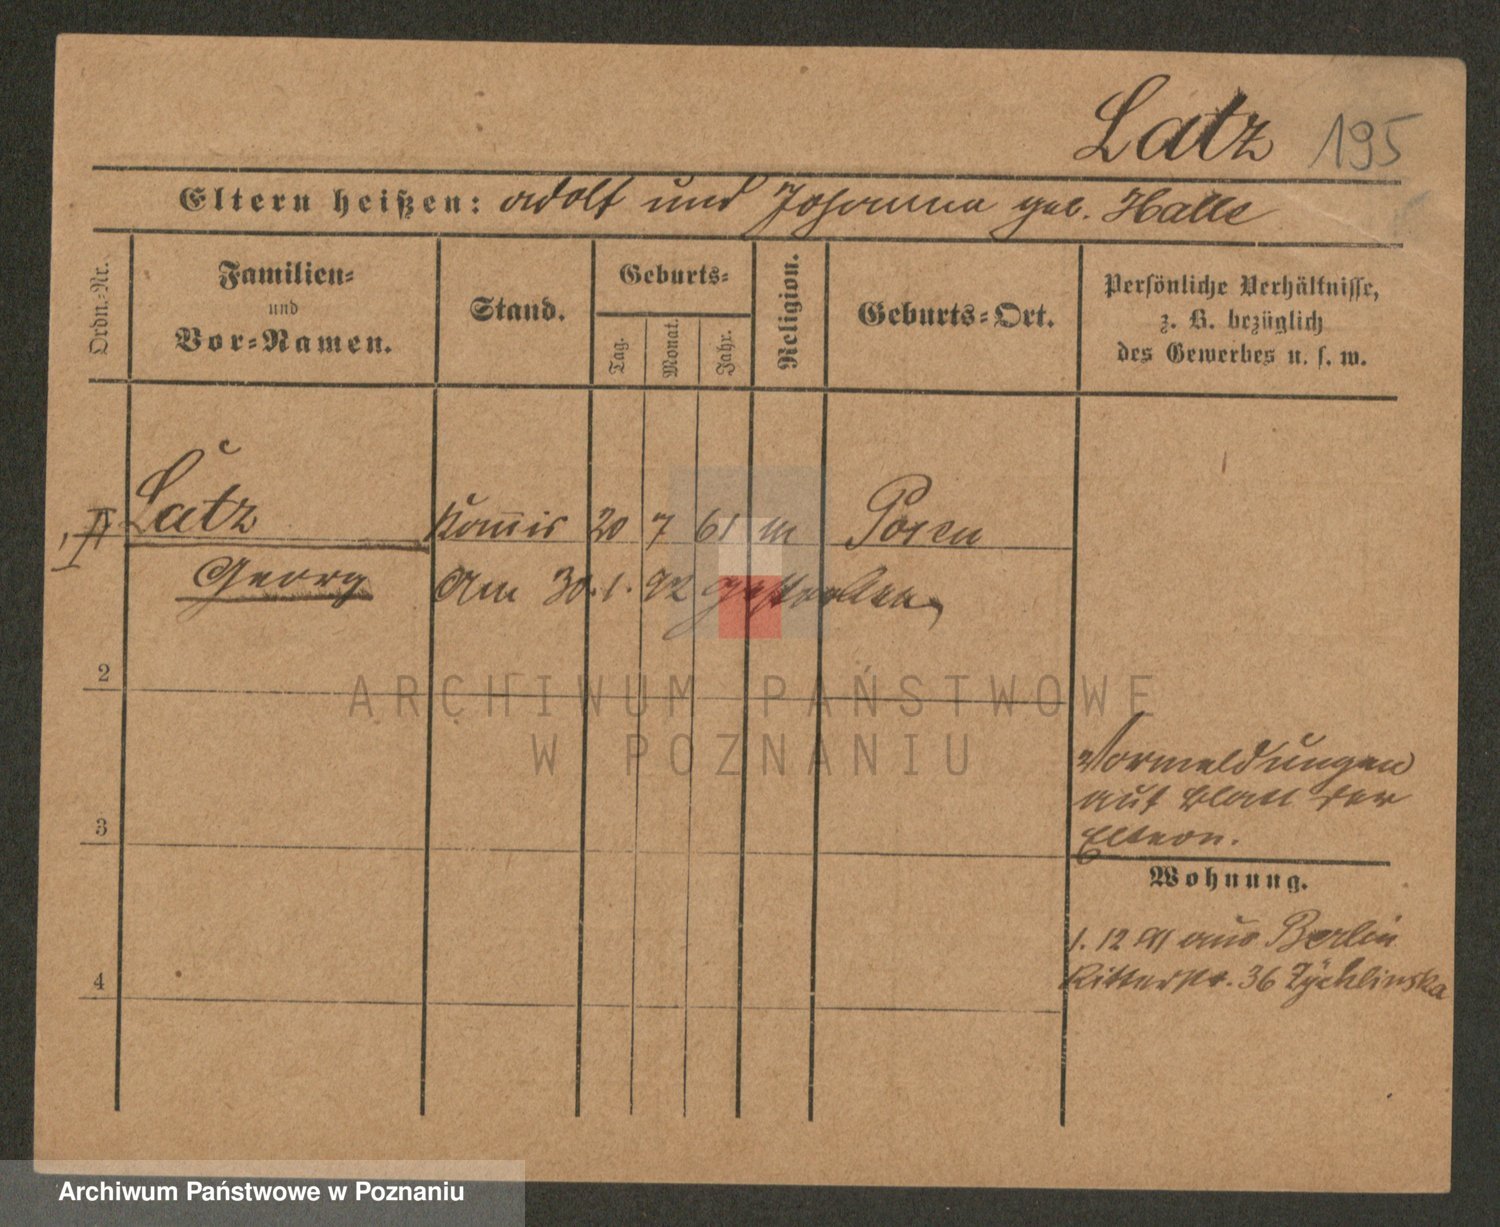 Latz 195
Eltern heißen: Adolf und Johanna geb. Halle
Ordn.-Nr.
Familien-
und
Vor-Namen.
Stand.
Geburts-
Tag.
Monat.
Jahr.
Religion.
Geburts-Ort.
Persönliche Verhältnisse,
z. B. bezüglich
des Gewerbes u. s. w.
Latz Kom̅is 20 7 61 m Posen
Georg Am 30.1.92 gestorben
2
3
4
Vormeldungen
auf Blatt der
Eltern.
Wohnung.
1. 12 91 aus Berlin
Ritterstr. 36 Zychlinska
ARCHIWUM PAŃSTWOWE
W POZNANIU
Archiwum Państwowe w Poznaniu